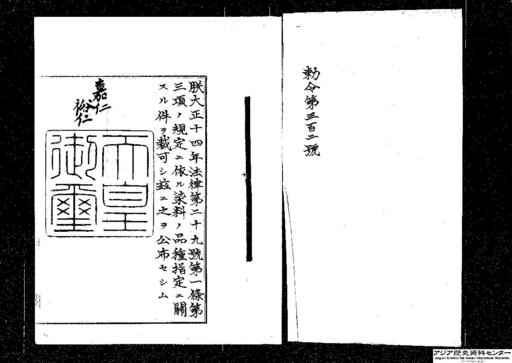 勅令第三百二號
朕大正十四年法律第二十九號第一條第
三項ノ規定ニ依ル染料ノ品種指定ニ關
スル件ヲ裁可シ玆ニ之ヲ公布セシム
嘉仁
裕仁
天皇御璽
アジア歴史資料センター
Japan Center for Asian Historical Records